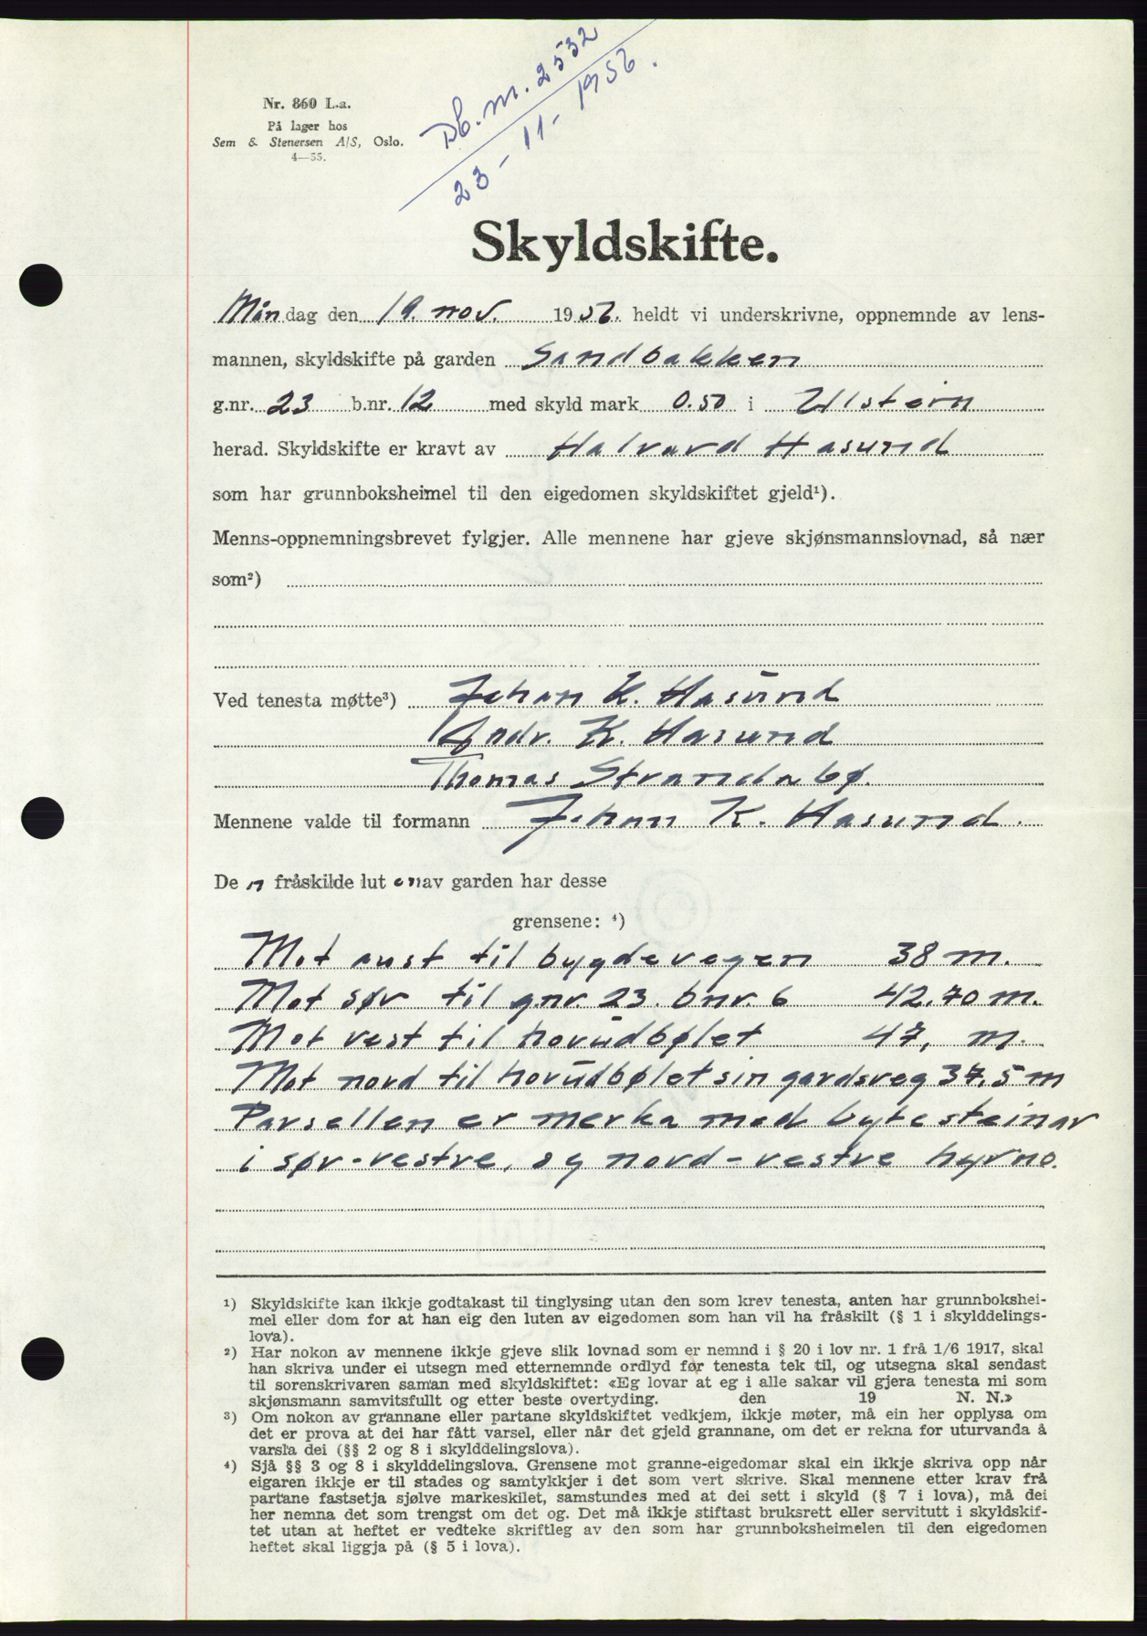 Db. nr. 2532
23-11-1956.
Nr. 860 L.a.
På lager hos
Sem & Stenersen A/S, Oslo.
4—55.
Skyldskifte.
Måndag den 19. nov. 1956. heldt vi underskrivne, oppnemnde av lens-
mannen, skyldskifte på garden Sandbakken
g.nr. 23 b.nr. 12 med skyld mark 0.50 i Ulstein
herad. Skyldskifte er kravt av Halvard Hasund
som har grunnboksheimel til den eigedomen skyldskiftet gjeld¹).
Menns-oppnemningsbrevet fylgjer. Alle mennene har gjeve skjønsmannslovnad, så nær
som²)
Ved tenesta møtte³) Johan K. Hasund
Andr. K. Hasund
Thomas Strandabø.
Mennene valde til formann Johan K. Hasund.
De n fråskilde lut en av garden har desse
grensene: ⁴)
Mot aust til bygdevegen 38 m.
Mot sør til gnr. 23. bnr. 6 42.70 m.
Mot vest til hovudbølet 47, m.
Mot nord til hovudbølet sin gardsveg 37,5 m
Parsellen er merka med bytesteinar
i sør-vestre, og nord-vestre hyrno.
¹) Skyldskifte kan ikkje godtakast til tinglysing utan den som krev tenesta, anten har grunnbokshei-
mel eller dom for at han eig den luten av eigedomen som han vil ha fråskilt (§ 1 i skylddelings-
lova).
²) Har nokon av mennene ikkje gjeve slik lovnad som er nemnd i § 20 i lov nr. 1 frå 1/6 1917, skal
han skriva under ei utsegn med etternemnde ordlyd før tenesta tek til, og utsegna skal sendast
til sorenskrivaren saman med skyldskiftet: «Eg lovar at eg i alle sakar vil gjera tenesta mi som
skjønsmann samvitsfullt og etter beste overtyding. den 19 N. N.»
³) Om nokon av grannane eller partane skyldskiftet vedkjem, ikkje møter, må ein her opplysa om
det er prova at dei har fått varsel, eller når det gjeld grannane, om det er rekna for uturvanda å
varsla dei (§§ 2 og 8 i skylddelingslova).
⁴) Sjå §§ 3 og 8 i skylddelingslova. Grensene mot granne-eigedomar skal ein ikkje skriva opp når
eigaren ikkje er til stades og samtykkjer i det som vert skrive. Skal mennene etter krav frå
partane fastsetja sjølve markeskilet, samstundes med at dei sett i skyld (§ 7 i lova), må dei
her nemna det som trengst om det og. Det må ikkje stiftast bruksrett eller servitutt i skyldskif-
tet utan at heftet er vedteke skriftleg av den som har grunnboksheimelen til den eigedomen
heftet skal liggja på (§ 5 i lova).